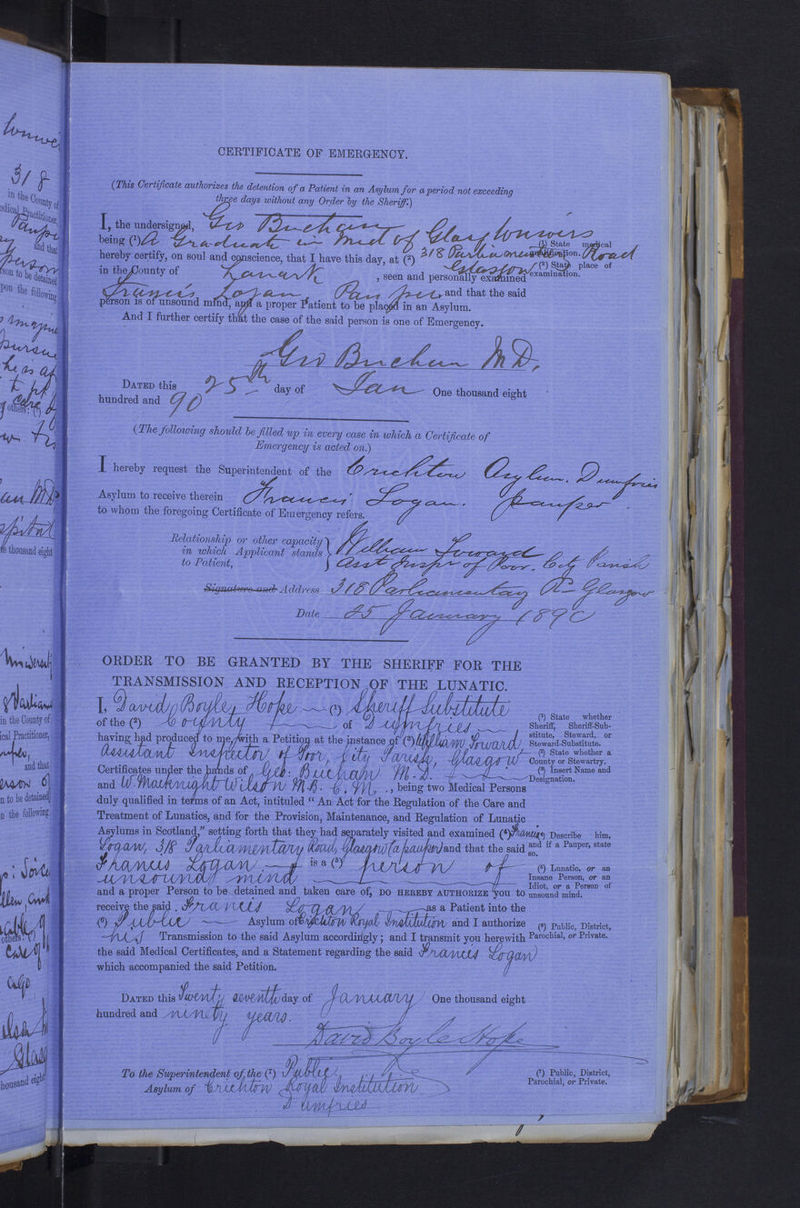 CERTIFICATE OF EMERGENCY.
(This Certificate authorizes the detention of a Patient in an Asylum for a period not exceeding
three days without any Order by the Sheriff.)
I, the undersigned, Geo Buchan
being (¹) A Graduate in Med of Glasg Univers
(¹) State medical qualification.
hereby certify, on soul and conscience, that I have this day, at (²) 318 Parliamentary Road
Glasgow
(²) State place of examination.
in the County of Lanark, seen and personally examined
Francis Logan Pauper and that the said
person is of unsound mind, and a proper Patient to be placed in an Asylum.
And I further certify that the case of the said person is one of Emergency.
Geo Buchan M.D.
DATED this 25th day of Jan One thousand eight
hundred and 90
(The following should be filled up in every case in which a Certificate of
Emergency is acted on.)
I hereby request the Superintendent of the Crichton Asylum. Dumfries
Asylum to receive therein Francis Logan. pauper.
to whom the foregoing Certificate of Emergency refers.
Relationship or other capacity
in which Applicant stands
to Patient,
William Howard
Asst Inspr of Poor. City Parish
Signature and Address 318 Parliamentary Rd Glasgow
Date 25 January 1890
ORDER TO BE GRANTED BY THE SHERIFF FOR THE
TRANSMISSION AND RECEPTION OF THE LUNATIC.
I, David Boyle Hope (¹) Sheriff Substitute
of the (²) County of Dumfries
(¹) State whether Sheriff, Sheriff-Substitute, Steward, or Steward-Substitute.
having had produced to me, with a Petition at the instance of (³) William Howard
Assistant Inspector of Poor, City Parish, Glasgow
(²) State whether a County or Stewartry.
Certificates under the hands of Geo: Buchan M.D.
(³) Insert Name and Designation.
and W. Macknight Wilson M.B. C.M., being two Medical Persons
duly qualified in terms of an Act, intituled "An Act for the Regulation of the Care and
Treatment of Lunatics, and for the Provision, Maintenance, and Regulation of Lunatic
Asylums in Scotland," setting forth that they had separately visited and examined (⁴) Francis
Logan, 318 Parliamentary Road, Glasgow (a pauper) and that the said
(⁴) Describe him, and if a Pauper, state so.
Francis Logan is a (⁵) person of
unsound mind
(⁵) Lunatic, or an Insane Person, or an Idiot, or a Person of unsound mind.
and a proper Person to be detained and taken care of, DO HEREBY AUTHORIZE YOU to
receive the said Francis Logan as a Patient into the
(⁶) Public Asylum of Crichton Royal Institution and I authorize
(⁶) Public, District, Parochial, or Private.
his Transmission to the said Asylum accordingly; and I transmit you herewith
the said Medical Certificates, and a Statement regarding the said Francis Logan
which accompanied the said Petition.
DATED this Twenty seventh day of January One thousand eight
hundred and ninety years.
David Boyle Hope
To the Superintendent of the (⁷) Public
(⁷) Public, District, Parochial, or Private.
Asylum of Crichton Royal Institution
Dumfries